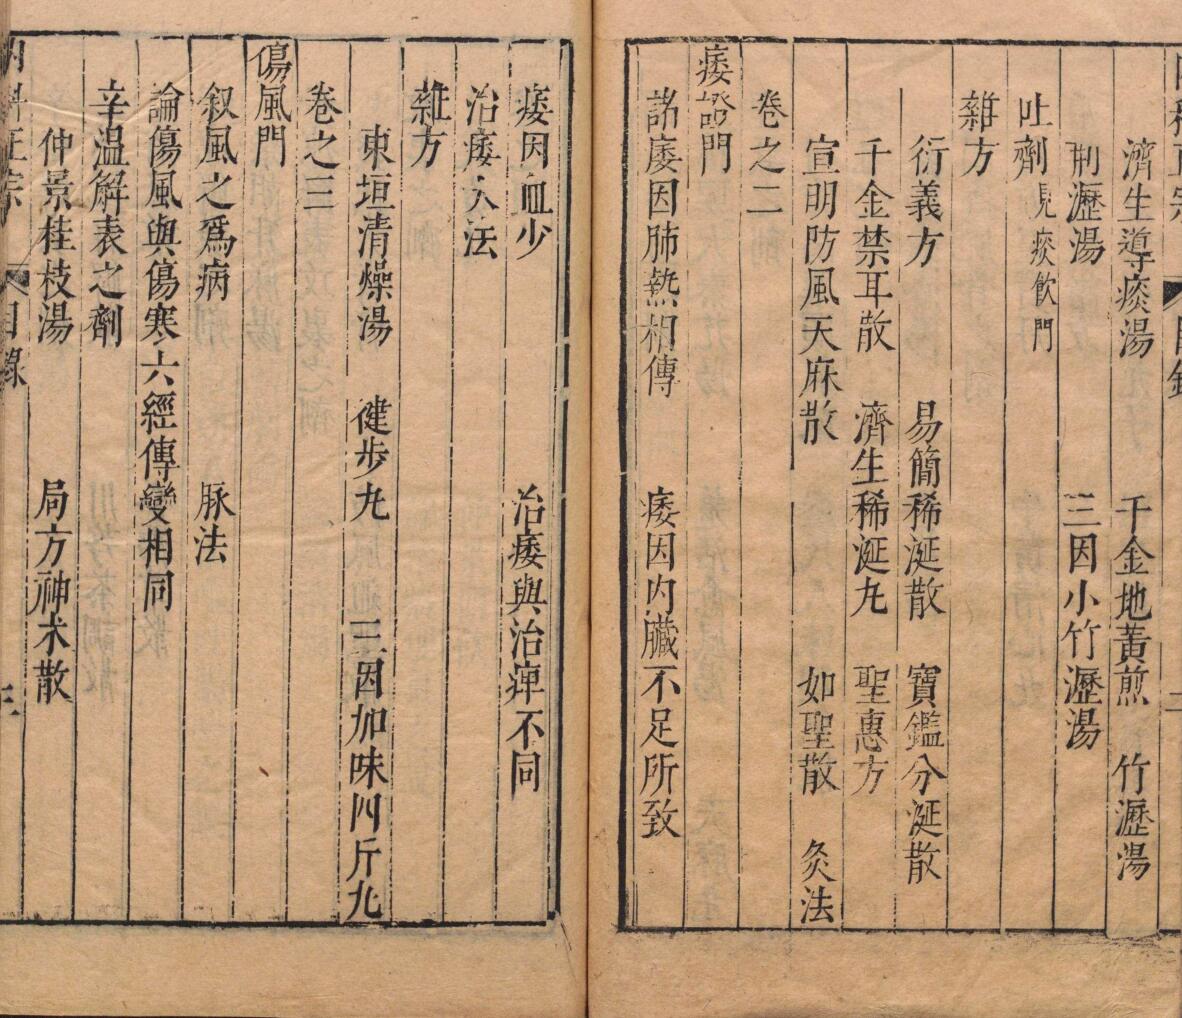 濟生導痰湯　千金地黃煎　竹瀝湯
荆瀝湯　三因小竹瀝湯
吐劑見痰飲門
雜方
衍義方　易簡稀涎散　寶鑑分涎散
千金禁耳散　濟生稀涎丸　聖惠方
宣明防風天麻散　如聖散　灸法
卷之二
痿證門
論痿因肺熱相傳　痿因内臟不足所致
痿因血少　治痿與治痺不同
治痿大法
雜方
東垣清燥湯　健步丸　三因加味四斤丸
卷之三
傷風門
叙風之爲病　脉法
論傷風與傷寒六經傳變相同
辛溫解表之劑
仲景桂枝湯　局方神术散
目錄　三